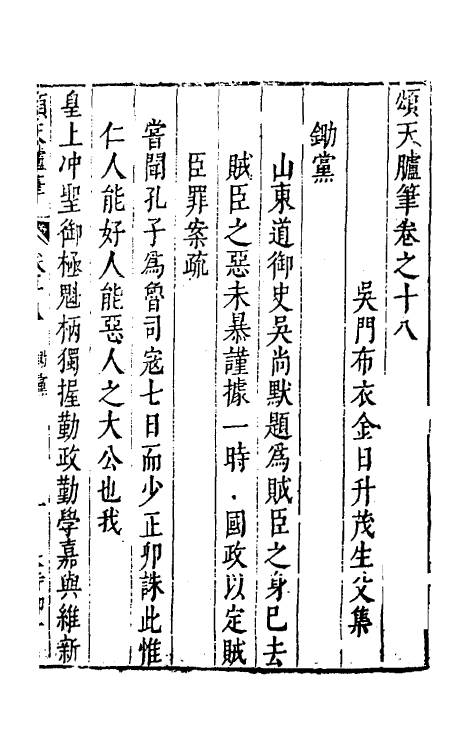 頌天臚筆卷之十八
吳門布衣金日升茂生父集
鋤黨
山東道御史吳尚默題爲賊臣之身已去
賊臣之惡未暴謹據一時國政以定賊
臣罪案疏
嘗聞孔子爲魯司寇七日而少正卯誅此惟
仁人能好人能惡人之大公也我
皇上冲聖御極魁柄獨握勤政勤學嘉與維新
頌天臚筆 卷十八 鋤黨 一